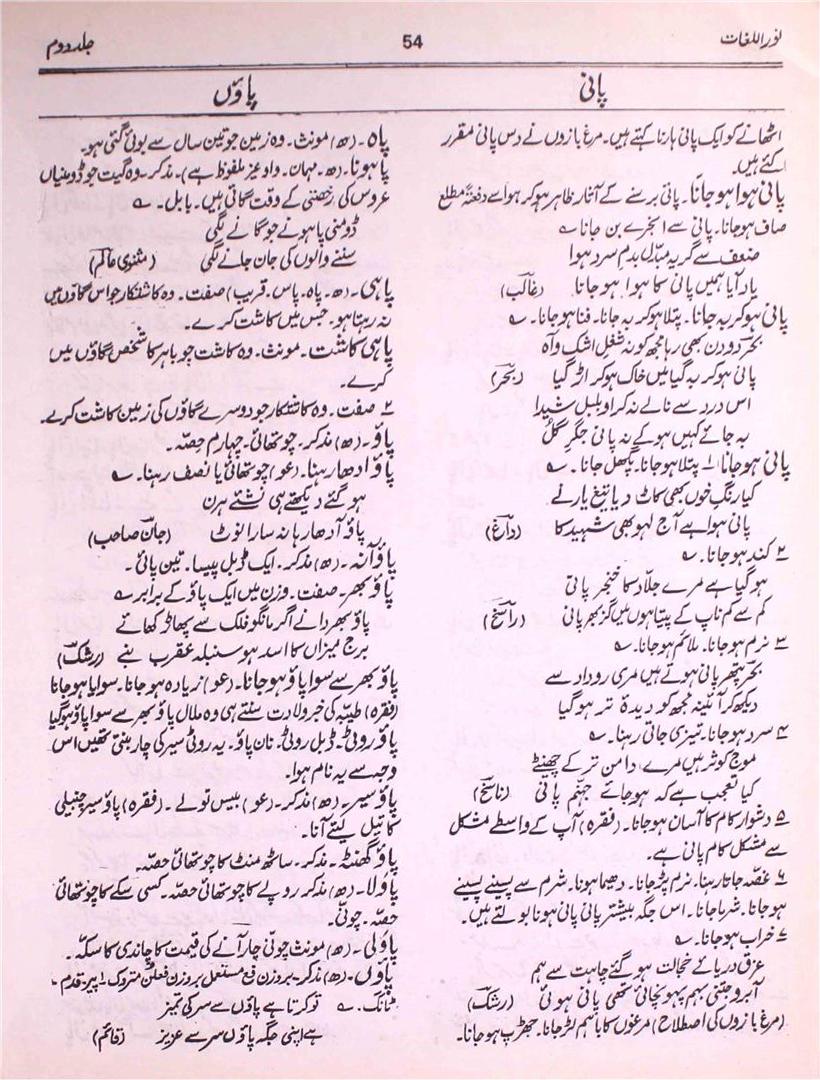 نور اللغات
54
جلد دوم
پانی
پاؤں
اٹھانے کو ایک پانی ہارنا کہتے ہیں۔ مرغ بازوں نے دس پانی مقرر
کئے ہیں۔
پانی ہوا ہو جانا۔ پانی برسنے کے آثار ظاہر ہو کر ہوا سے دفعتہً مطلع
صاف ہو جانا۔ پانی سے ابخرے بن جانا ؎
ضعف سے گریہ مبدّل بدمِ سرد ہوا
یاد آیا ہمیں پانی کا ہوا ہو جانا (غالب)
پانی ہو کر بہ جانا۔ پتلا ہو کر بہ جانا۔ فنا ہو جانا۔ ؎
بحر دو دن بھی رہا مجھ کو نہ شغلِ اشک و آہ
پانی ہو کر بہ گیا میں خاک ہو کر اڑ گیا (بحر)
اس درد سے نالے نہ کر او بلبل شیدا
بہ جائے کہیں ہو کے نہ پانی جگرِ گل
پانی ہو جانا ۱ پتلا ہو جانا۔ پگھل جانا۔ ؎
کیا رنگِ خوں بھی کاٹ دیا تیغ یار نے
پانی ہوا ہے آج لہو بھی شہید کا (داغ)
۲ کند ہو جانا۔ ؎
ہو گیا ہے مرے جلاد کا خنجر پانی
کم سے کم ناپ کے پیتا ہوں میں گز بھر پانی (راسخ)
۳ نرم ہو جانا۔ ملائم ہو جانا۔ ؎
بحر پتھر پانی ہوتے ہیں مری روداد سے
دیکھ کر آئینہ مجھ کو دیدۂ تر ہو گیا
۴ سرد ہو جانا۔ تیزی جاتی رہنا۔ ؎
موج کوثر ہیں مرے دامن تر کے چھینٹے
کیا تعجب ہے کہ ہو جائے جہنم پانی (ناسخ)
۵ دشوار کام کا آسان ہو جانا۔ (فقرہ) آپ کے واسطے مشکل
سے مشکل کام پانی ہے۔
۶ غصہ جاتا رہنا۔ نرم پڑ جانا۔ دھیما ہونا۔ شرم سے پسینے پسینے
ہو جانا۔ شرما جانا۔ اس جگہ بیشتر پانی پانی ہونا بولتے ہیں۔
۷ خراب ہو جانا۔ ؎
عرق دریائے خجالت ہو گئے چاہت سے ہم
آبرو جتنی بہم پہونچائی تھی پانی ہوئی (رشک)
(مرغ بازوں کی اصطلاح) مرغوں کا باہم لڑ جانا۔ جھڑپ ہو جانا۔
پاہ۔ (ھ) مونث۔ وہ زمین جو تین سال سے بوئی گئی ہو۔
پاہونا۔ (ھ۔ مہمان۔ واو غیر ملفوظ ہے)۔ مذکر۔ وہ گیت جو ڈومنیاں
عروس کی رخصتی کے وقت گاتی ہیں۔ بابل۔ ؎
ڈومنی پاہونے جو گانے لگی
سننے والوں کی جان جانے لگی (مثنوی عالم)
پاہی۔ (ھ۔ پاہ۔ پاس۔ قریب) صفت۔ وہ کاشتکار جو اس گاؤں میں
نہ رہتا ہو۔ جس میں کاشت کرے۔
پاہی کاشت۔ مونث۔ وہ کاشت جو باہر کا شخص گاؤں میں
کرے۔
۲ صفت۔ وہ کاشتکار جو دوسرے گاؤں کی زمین کاشت کرے۔
پاؤ۔ (ھ) مذکر۔ چوتھائی۔ چہارم حصہ۔
پاؤ ادھار رہنا۔ (عو) چوتھائی یا نصف رہنا۔ ؎
ہو گئے دیکھتے ہی نشئے ہرن
پاؤ آدھا رہا نہ سارا نوٹ (جان صاحب)
پاؤ آنہ۔ (ھ) مذکر۔ ایک ڈبل پیسا۔ تین پائی۔
پاؤ بھر۔ صفت۔ وزن میں ایک پاؤ کے برابر ؎
پاؤ بھر دانے اگر مانگو فلک سے پھاڑ کھائے
برج میزاں کا اسد ہو سنبلہ عقرب بنے (رشک)
پاؤ بھر سے سوا پاؤ ہو جانا۔ (عو) زیادہ ہو جانا۔ سوایا ہو جانا
(فقرہ) طیبہ کی خبر ولادت سنتے ہی وہ ملال پاؤ بھر سے سوا پاؤ ہو گیا
پاؤ روٹی۔ ڈبل روٹی۔ نان پاؤ۔ یہ روٹی سیر کی چار بنتی تھیں اس
وجہ سے یہ نام ہوا۔
پاؤ سیر۔ (ھ) مذکر۔ (عو) بیس تولے۔ (فقرہ) پاؤ سیر چنبیلی
کا تیل لیتے آنا۔
پاؤ گھنٹہ۔ مذکر۔ ساٹھ منٹ کا چوتھائی حصہ۔
پاؤلا۔ (ھ) مذکر روپے کا چوتھائی حصہ۔ کسی سکے کا چوتھائی
حصہ۔ چونی۔
پاؤلی۔ (ھ) مونث چونی چار آنے کی قیمت کا چاندی کا سکہ۔
پاؤں۔ (ھ) مذکر۔ بروزن فع مستعمل بروزن فعلن متروک۔ ۱ پیر۔ قدم۔
ٹانگ۔ ؎ تو کرتا ہے پاؤں سے سر کی تمیز
ہے اپنی جگہ پاؤں سر سے عزیز (قائم)